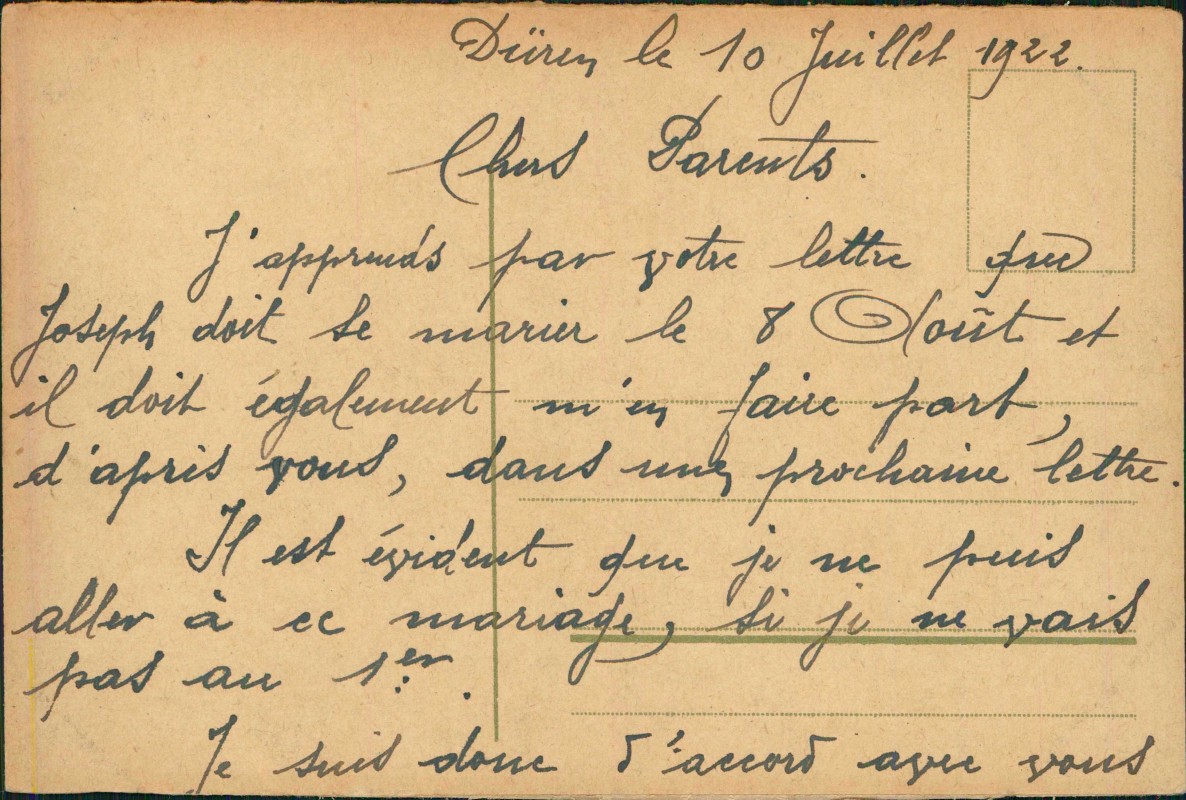 Düren le 10 Juillet 1922.
Chers Parents.
J'apprends par votre lettre que
Joseph doit se marier le 8 Août et
il doit également m'en faire part,
d'après vous, dans une prochaine lettre.
Il est évident que je ne puis
aller à ce mariage, si je ne vais
pas au 1er.
Je suis donc d'accord avec vous